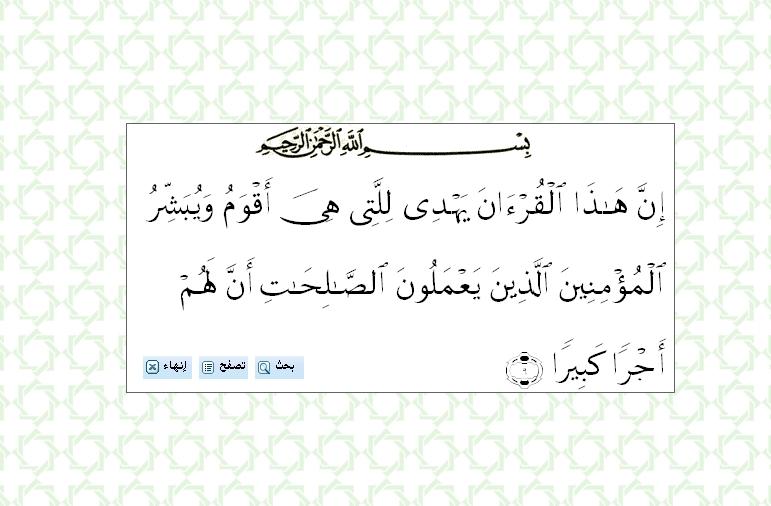 بِسْمِ ٱللَّهِ ٱلرَّحْمَٰنِ ٱلرَّحِيمِ
إِنَّ هَـٰذَا ٱلْقُرْءَانَ يَهْدِى لِلَّتِى هِىَ أَقْوَمُ وَيُبَشِّرُ
ٱلْمُؤْمِنِينَ ٱلَّذِينَ يَعْمَلُونَ ٱلصَّـٰلِحَـٰتِ أَنَّ لَهُمْ
أَجْرًا كَبِيرًا ٩
بحث تصفح إنهاء